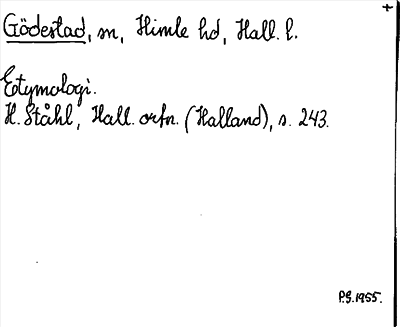 +
Gödestad, sn, Himle hd, Hall. l.
Etymologi.
H. Ståhl, Hall. ortn. (Halland), s. 243.
P.G. 1955.